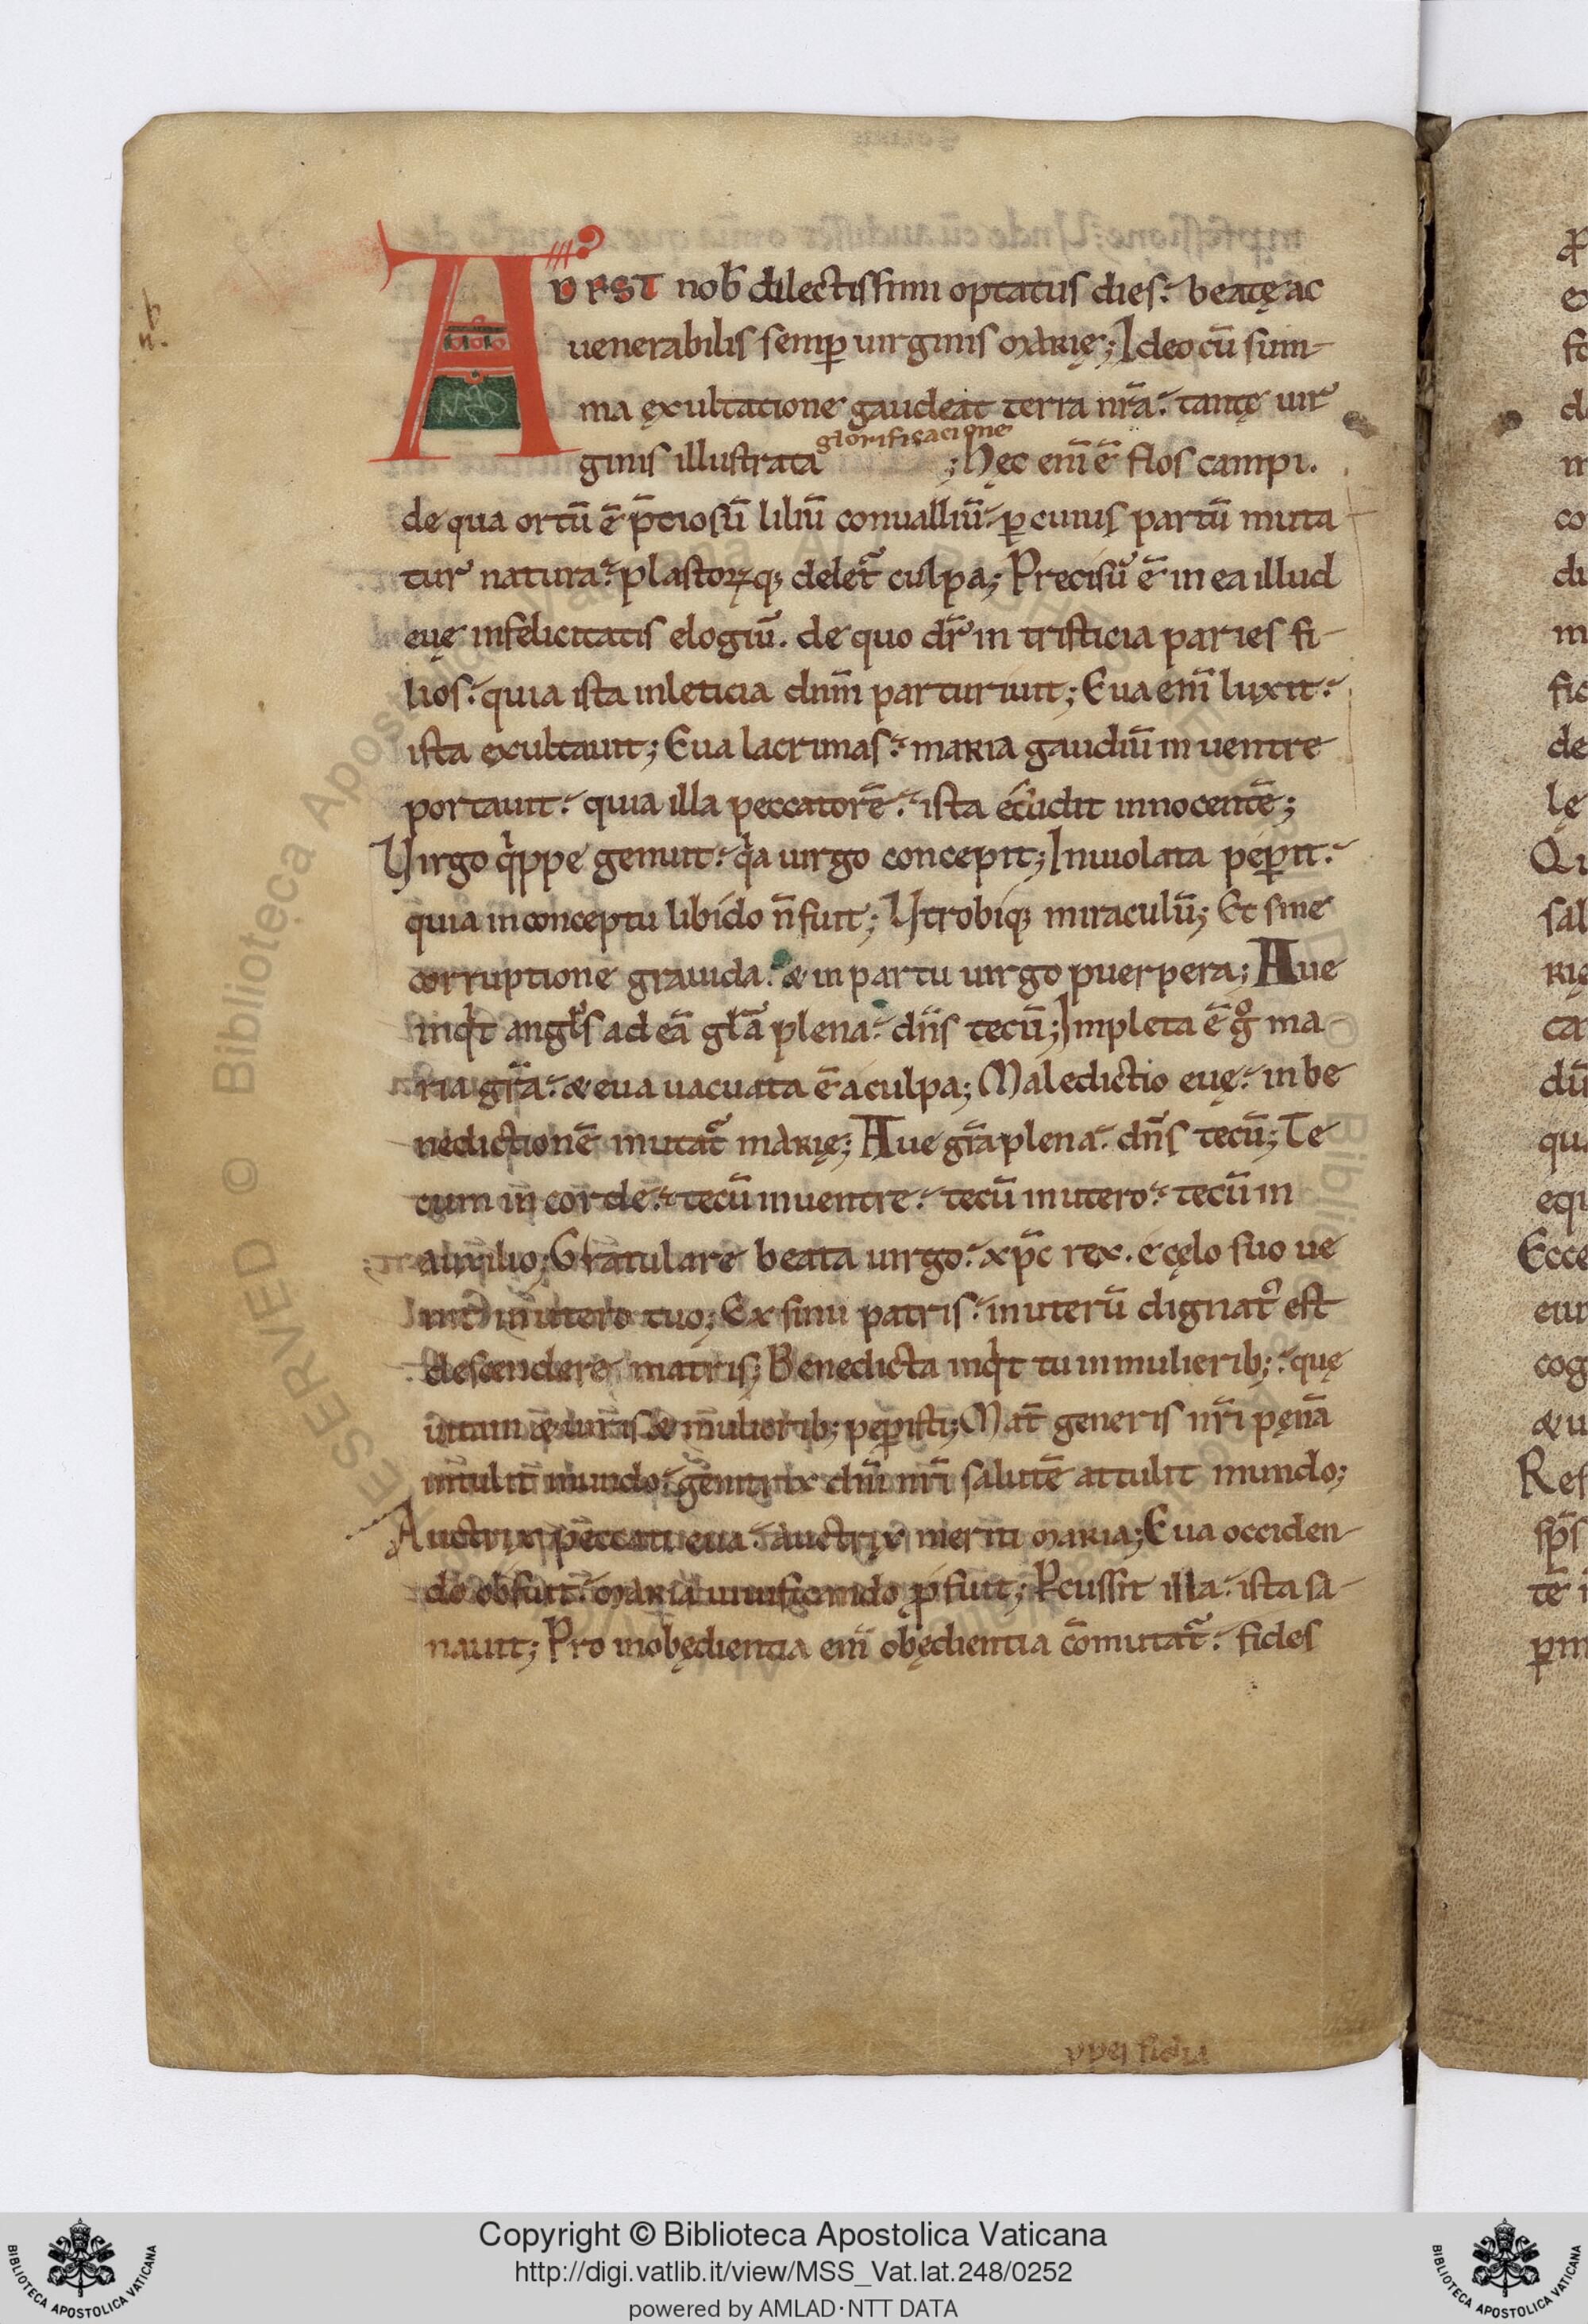 ADEST nob̄ dilectissimi optatus dies. beatę ac
uenerabilis semp̱ uirginis marię; Ideo cū sum-
ma exultatione gaudeat terra nr̄a. tantę uir
glorificacione
ginis illustrata ; Hęc eni̅ ē flos campi.
de qua ortū ē p̄ciosū liliū conualliū. p̱ cuius partū muta
tur natura. plastorꝝq; delet᷑ culpa; Precisū ē in ea illud
euę infelicitatis elogiū. de quo dr̄ in tristicia paries fi-
lios. quia ista in leticia dnm̄ parturiuit; Eua eni̅ luxit.
ista exultauit; Eua lacrimas. maria gaudiū in uentre
portauit. quia illa peccatorē. ista innocentē;
Virgo qͥppe genuit. qͥa uirgo concepit; Inuiolata pep̱it.
quia in conceptu libido n̄ fuit; Vtrobiq; miraculū; Et sine
corruptione grauida. & in partu uirgo puerpera; Aue
inqͥt angłs ad eā plena. dn̄s tecū; Impleta ē gͦ ma
ria gr̄a. & eua uacuata ē a culpa; Maledictio euę. in be
nedictionē mutat᷑ marię; Aue gr̄a plena. dn̄s tecū; Te
cum in corde. tecū in uentre. tecū in utero. tecū in
auxilio; Gratulare beata uirgo. xp̄c rex. e cęlo suo ue
nit in utero tuo; Ex sinu patris. in uterū dignat᷑ est
descendere matris; Benedicta inqͥt tu in mulierib;. quę
uitam & uiris & mulierib; pep̱isti; Mat̄ generis nr̄i pęnā
intulit mundo. genitrix dn̄i nr̄i salutē attulit mundo;
Auctrix peccati eua. auctrix meriti maria; Eua occiden-
do obfuit. maria uiuificando ꝓfuit; P̱cussit illa. ista sa-
nauit; Pro inobędientia eni̅ obędientia cōmutat᷑. fides
Copyright © Biblioteca Apostolica Vaticana
http://digi.vatlib.it/view/MSS_Vat.lat.248/0252
powered by AMLAD·NTT DATA
BIBLIOTECA APOSTOLICA VATICANA
BIBLIOTECA APOSTOLICA VATICANA